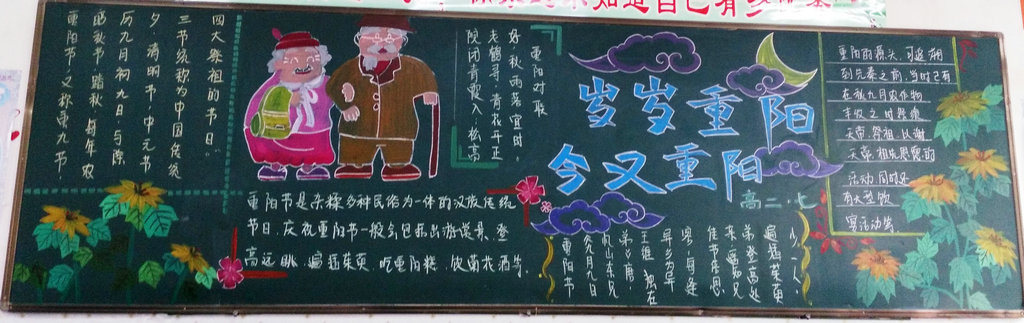 知道自己有多
重阳节，又称重九节
晒秋节、踏秋，每年农
历九月初九日，与除
夕、清明节、中元节
三节统称为中国传统
四大祭祖的节日。
重阳对联
院闭青霞入，松高
老鹤寻。青花平正
好，秋雨落宜时。
岁岁重阳
今又重阳
高二·七
重阳节是杂糅多种民俗为一体的汉族传统
节日，庆祝重阳节一般会包括出游赏景、登
高远眺、遍插茱萸、吃重阳糕、饮菊花酒等。
重阳节
九月九日
忆山东兄
弟 唐·
王维 独在
异乡为异
客，每逢
佳节倍思
亲。遥知兄
弟登高处
遍插茱萸
少一人。
重阳的源头，可追溯
到先秦之前，当时已有
在秋九月农作物
丰收之时祭飨
天帝、祭祖，以谢
天帝、祖先恩德的
活动。同时还
有大型饮
宴活动等。